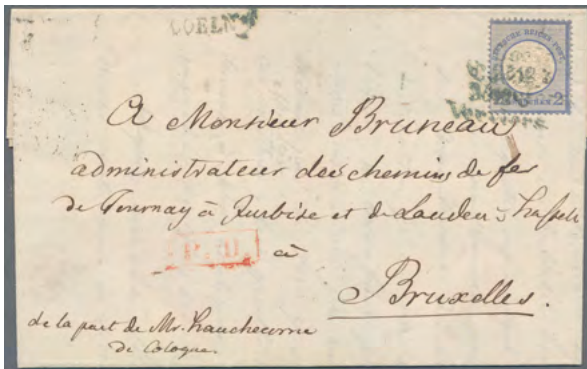 COELN
DEUTSCHE REICHS-POST
12
2
A Monsieur Bruneau
administrateur des chemins de fer
de Tournay à Jurbise et de Landen à Hasselt
P.D.
à
Bruxelles.
de la part de Mr. Hauchecorne
de Cologne.